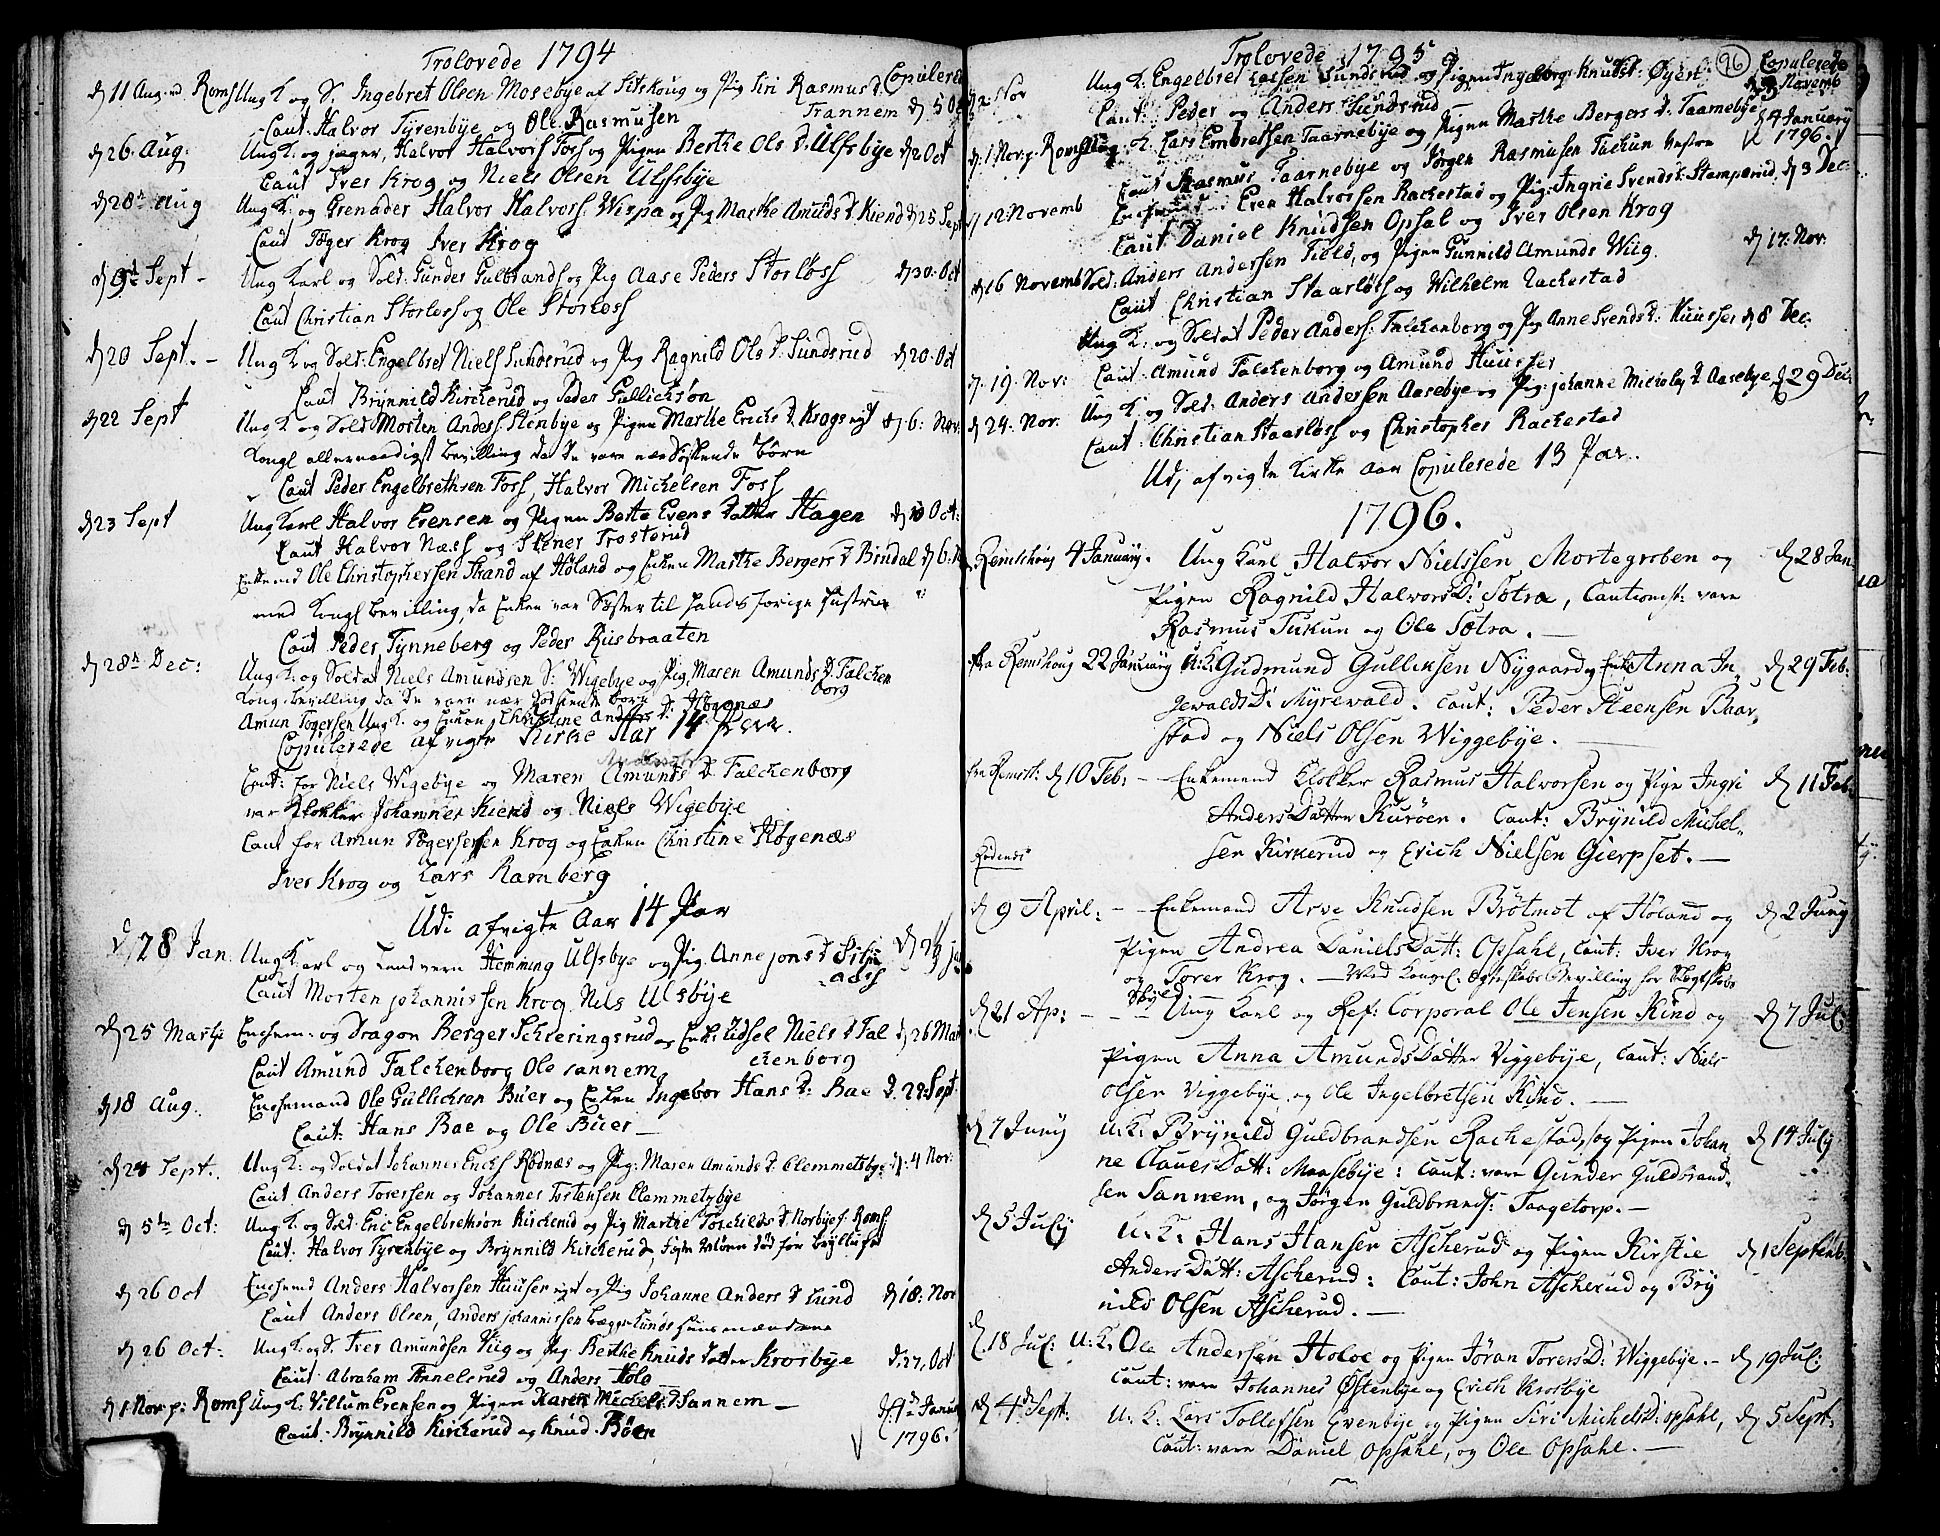 Trolovede 1794
Copulerede
d 11 Aug. Romsk Ung K og S. Ingebret Olsen Mosebye af Setskoug og Pig Siri Rasmus D.
Trannem d 5 Oct
Caut Halvor Tyrenbye og Ole Rasmusen
d 26. Aug: Ung K. og jæger, Halvor Halvors Foss og Pigen Berthe Ols D. Ulfsbye d 2 Oct
Caut Iver Krog og Niels Olsen Ulfsbye
d 28 Aug Ung K: og Grenader Halvor Halvorss: Wispa og Pig Marthe Amuds D. Kiend d 25 Sept
Caut Töger Krog Iver Krog
d 9 Sept - Ung Karl og Sold: Gunder Gulbrands og Pig Aase Peders Storløss d 30. Oct
Caut Christian Storløss og Ole Storløss
d 20 Sept. - Ung K og Sold: Engelbret Niels Sundsrud og Pig Ragnild Ols D. Sundsrud d 20. Oct
Caut Brynnild Kirckerud og Peder Gullicksøn
d 22 Sept Ung K og Sold Morten Anderss Stenbye og Pigen Marthe Erichs D. Krogs d 6: Nov:
Kongl allernaadigst bevilling da de vare nær Södskende Børn
Caut Peder Engelbrethsen Foss, Halvor Michelsen Foss
d 23 Sept Ung Karl Halvor Evensen og Pigen Berte Evens Datter Hagen d 10 Oct:
Caut Halvor Næss og Stener Trosterud
Enkemd Ole Christophersen Strand af Höland og Enken Marthe Bergers D Brudal d 6.
med Kongl bevilling, da Enken var Söster til hands forrige Hustrue
Caut Peder Tynneberg og Peder Riisbraaten
d 28 Dec: Ung K: og Soldat Niels Amundsen S: Wigebye og Pig Maren Amunds D. Falckenborg
Kong. bevilling da de vare nær Södskende born
Amun Togersen Ung K. og Enken Christine Anders D. Høgenæs
Copulerede afvigte Kirke Aar 14 Par.
Caut: for Niels Wigebye og Maren Amunds D. Falckenborg
var Klokker Johannes Kiend og Niels Wigebye
Caut for Amun Tögersen Krog og Enken Christine Høgenæs
Iver Krog og Lars Ramberg
Udi afvigte Aar 14 Par
d 28 Jan. Ung Karl og Landvern Hemming Ulfsbye og Pig Anne Jons D
Caut Morten Johannissen Krog Nels Ulsbye
d 25 Martj Enchem: og Dragon Berger Schieringsrud og Enk: Sidsel Niels D Falckenborg d 26 Mar
Caut Amund Falckenborg Ole Sannem
d 18 Aug. Enchemand Ole Gullichsen Buer og Enken Ingebor Hans D: Bae d. 29 Sept
Caut: Hans Bae og Ole Buer -
d 24 Sept. Ung K: og Soldat Johannes Erichs Rødnæs og Pig: Maren Amunds D Clemmetsbye d: 4 Nov:
Caut Anders Torersen og Johannes Tostensen Clemmetsbye
d 5te Oct: Ung K. og Sold. Eric Engelbrektsøn Kirckerud og Pig Marthe Torchilds D. Norbye f. Roms
Caut: Halvor Tyrenbye og Brynnild Kirckerud,
d 26 Oct Enchemd Anders Halvorsen Huuser og Pig Johanne Anders D Lund d 18: Nov
Caut Anders Olsen, Anders Johannissen begge Lunds huusmændene
d 26 Oct: Ung K. og S. Iver Amundsen Viig og Pig: Berthe Knuds Datter Krosbye d. 27. Oct
Caut: Abraham Annelsrud og Anders Holo
d 1 Nov p: Roms Ung K: Villum Evensen og Pigen Karen Michels D Sannem - d 4de Januar
1796.
Caut. Brynnild Kirckerud og Knud Böen
Trolovede 1795
96
Copulerede
d 2 Nov Ung K: Engelbret Larssen Sundsrud og Pigen Ingeborg Knudsd: Øyert: Novemb
Caut: Peder og Anders Sundsrud
d. 1 Nov. p. Romskoug Ung K. Lars Embretsen Taarnebye og Pigen Marthe Bergers D. Taarnebye d 4 January
1796.
Caut Rasmus Taarnebye og Jörgen Rasmusen Tuckun
d 12 Novemb Enchemand Even Halvorssen Rackestad og Pig: Ingrie Svends D: Stamperud, d 3 Dec:
Caut Daniel Knudsen Opsal og Iver Olsen Krog
d 16 Novemb Sold: Anders Andersen Field, og Pigen Gunnild Amunds Wiig. d 17. Nov.
Caut Christian Staarløss og Wilhelm Rackestad
Ung K: og Soldat Peder Anderss: Falckenborg og Pig Anne Svends D: Huusser d 8 Dec
7. 19. Nov: Caut: Amund Falckenborg og Amund Huusser
d 24: Nov. Ung K. og Sold: Anders Andersen Aasebye og Pig: Johanne Nicholay D Aasebye d 29 Dec
Caut: Christian Staarløss og Christopher Rackestad
Udj afvigte Kirke Aar Copulerede 13 Par.
1796.
Remskoug 4 January. Ung Karl Halvor Nielssen Mortegroben og d 28 Jan.
Pigen Ragnild Halvors D: Sotra, Cautionst: vare
Rasmus Tukun og Ole Sotra. -
fra Remskoug 22 January U: K: Gudmund Gulliksen Nygaard og Enke Anna In- d 29 Feb.
gevalds D: Myrewald. Caut: Peder Steensen Baar-
stad og Niels Olsen Wiggebye. -
fra Remsk: d 10 Feb: - Enkemand Klokker Rasmus Halvorsen og Pige Ingri d 11 Feb:
Anders Datter Kuröen. Caut: Brynild Michel-
sen Kirkerud og Erich Nielsen Gierpset. -
Rödenes
d 9 April: - Enkemand Arve Knudsen Brötmot af Höland og d 2 Juny
Pigen Andrea Daniels Datt: Opsahl, Caut: Iver Krog
og Torer Krog. - Med Kongel: Egteskabs Bevilling for Slegtskabs
Skyld
d 21 Ap: - - Ung Karl og Ref: Corporal Ole Jensen Kind og d 7 Jul:
Pigen Anna Amunds Datter Viggebye, Caut: Niels
Olsen Viggebye, og Ole Ingelbretsen Kind. -
d 7 Juny U: K: Brynild Guldbrandsen Rachestad, og Pigen Johan- d 14 July
ne Claues Datt: Maasebye: Caut: vare Gunder Guldbrand-
sen Sannem, og Jørgen Guldbrands: Taagetorp. -
d 5 July U: K: Hans Hansen Ascherud og Pigen Kirstie d 1 Septemb:
Anders Datt: Ascherud: Caut: John Ascherud og Bry-
nild Olsen Ascherud. -
d. 18 Jul: U: K: Ole Andersen Holoe og Pigen Jöran Torers D: Wiggebye. - d 19 Jul:
Caut: vare Johannes Østenbye og Erich Krosbye
d 4 Sept: U: K: Lars Tollefsen Evenbye og Pigen Siri Michels D: Opsahl, d 5 Sept:
Caut: vare Daniel Opsahl, og Ole Opsahl. -